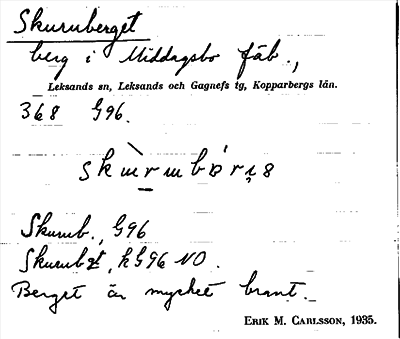 Skurnberget
berg i Middagsbo fäb.,
Leksands sn, Leksands och Gagnefs tg, Kopparbergs län.
368 G96.
Skurnb., G96
Skurnbgt, kG96 NO.
Berget är mycket brant.
ERIK M. CARLSSON, 1935.